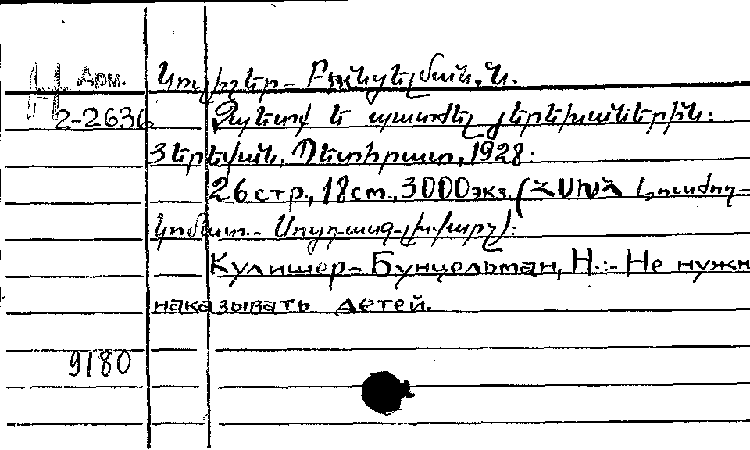 Арм. Կուլիշեր - Բունցելման, Ն.
2-2636 Չպետք է պատժել յերեխաներին:
Յերեվան, Պետհրատ, 1928:
26 стр., 18 см., 3000 экз. (ՀՍԽՀ Լուսժող-
կոմատ.-
Кулишер - Бунцельман, Н.:- Не нужн
наказывать детей.
9180